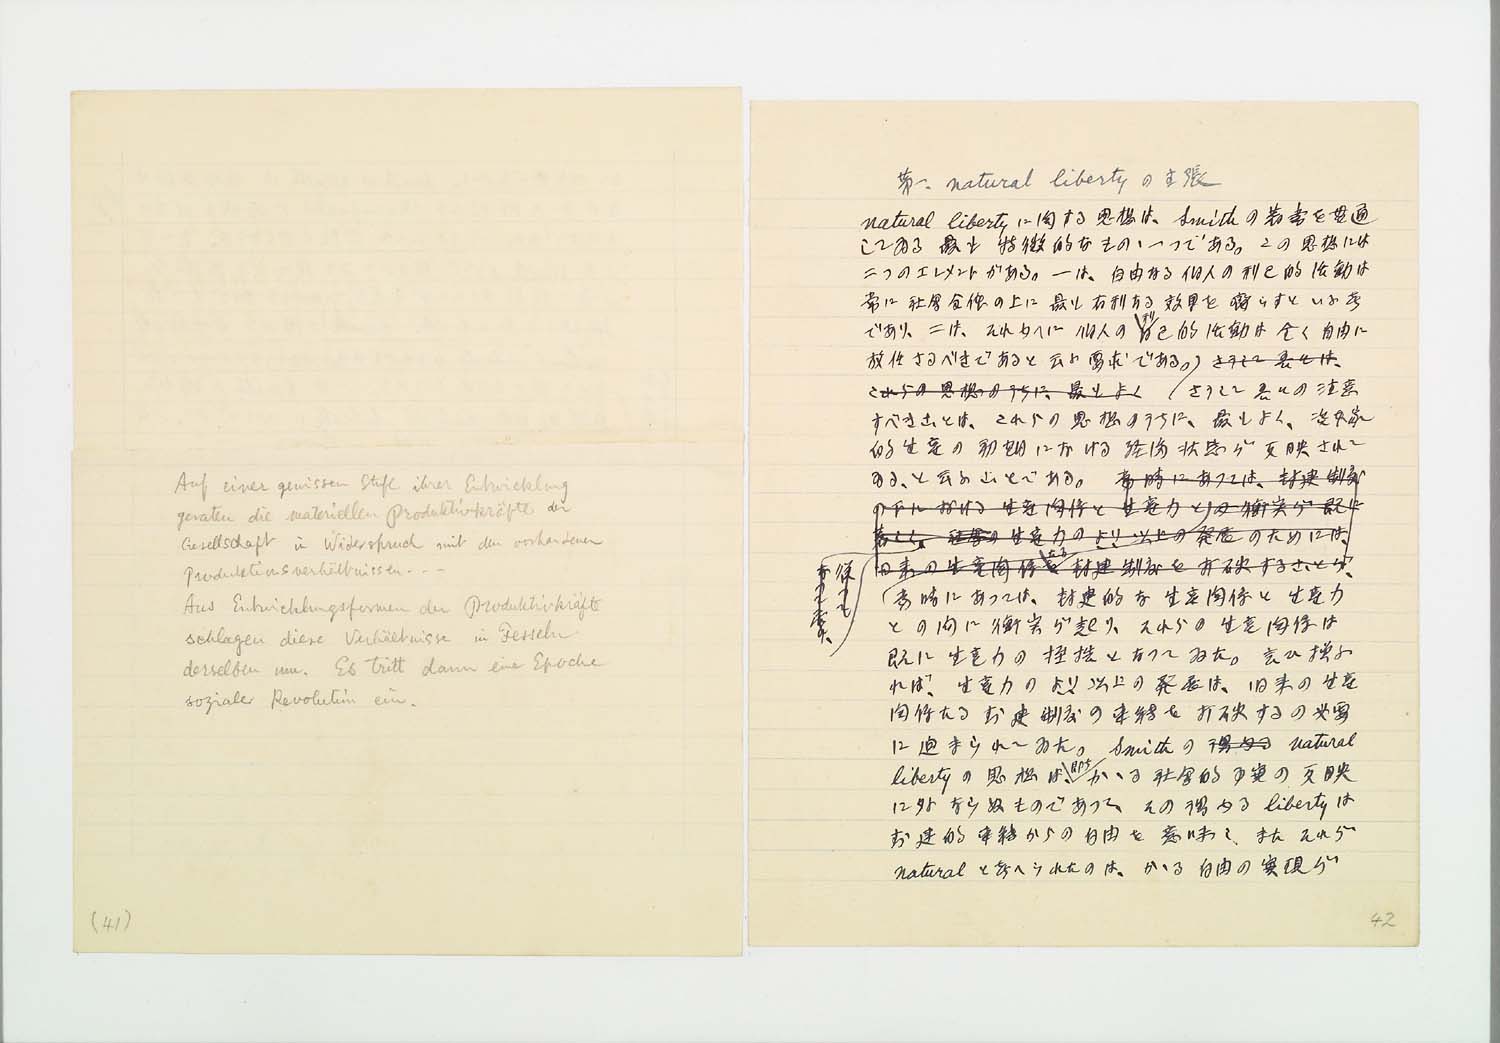 Auf einer gewissen Stufe ihrer Entwicklung
geraten die materiellen Produktivkräfte der
Gesellschaft in Widerspruch mit den vorhandenen
Produktionsverhältnissen. - - -
Aus Entwicklungsformen der Produktivkräfte
schlagen diese Verhältnisse in Fesseln
derselben um. Es tritt dann eine Epoche
sozialer Revolution ein.
(41)
第一、natural libertyの主張
natural libertyに関する思想は、Smithの著書を貫通
してゐる最も特徴的なものゝ一つである。この思想には
二つのエレメントがある。一は、自由なる個人の利己的活動は
常に社会全体の上に最も有利なる效果を齎らすといふ考
であり、二は、それゆへに個人の利己的活動は全く自由に
放任さるべきであると云ふ要求である。さうして
これらの思想のうちに、最もよく さうして の注意
すべきことは、これらの思想のうちに、最もよく、資本家
的生産の初期における経済状態が反映されて
ある、と云ふことである。 当時にあつては、封建制度
の下における生産関係と生産力との衝突が既に
生産力のより以上の発展のためには、
旧来の生産関係たる封建制度を打破することが、
当時にあつては、封建的な生産関係と生産力
との間に衝突が起り、それらの生産関係は
既に生産力の桎梏となつてゐた。言ひ換ふ
れば、生産力のより以上の発展は、旧来の生産
関係たる封建制度の束縛を打破するの必要
に迫まられてゐた。Smithの natural
libertyの思想は、即ちかゝる社会的事実の反映
に外ならぬものであつて、その謂ゆるlibertyは
封建的束縛からの自由を意味し、またそれが
naturalと考へられたのは、かゝる自由の実現が
42